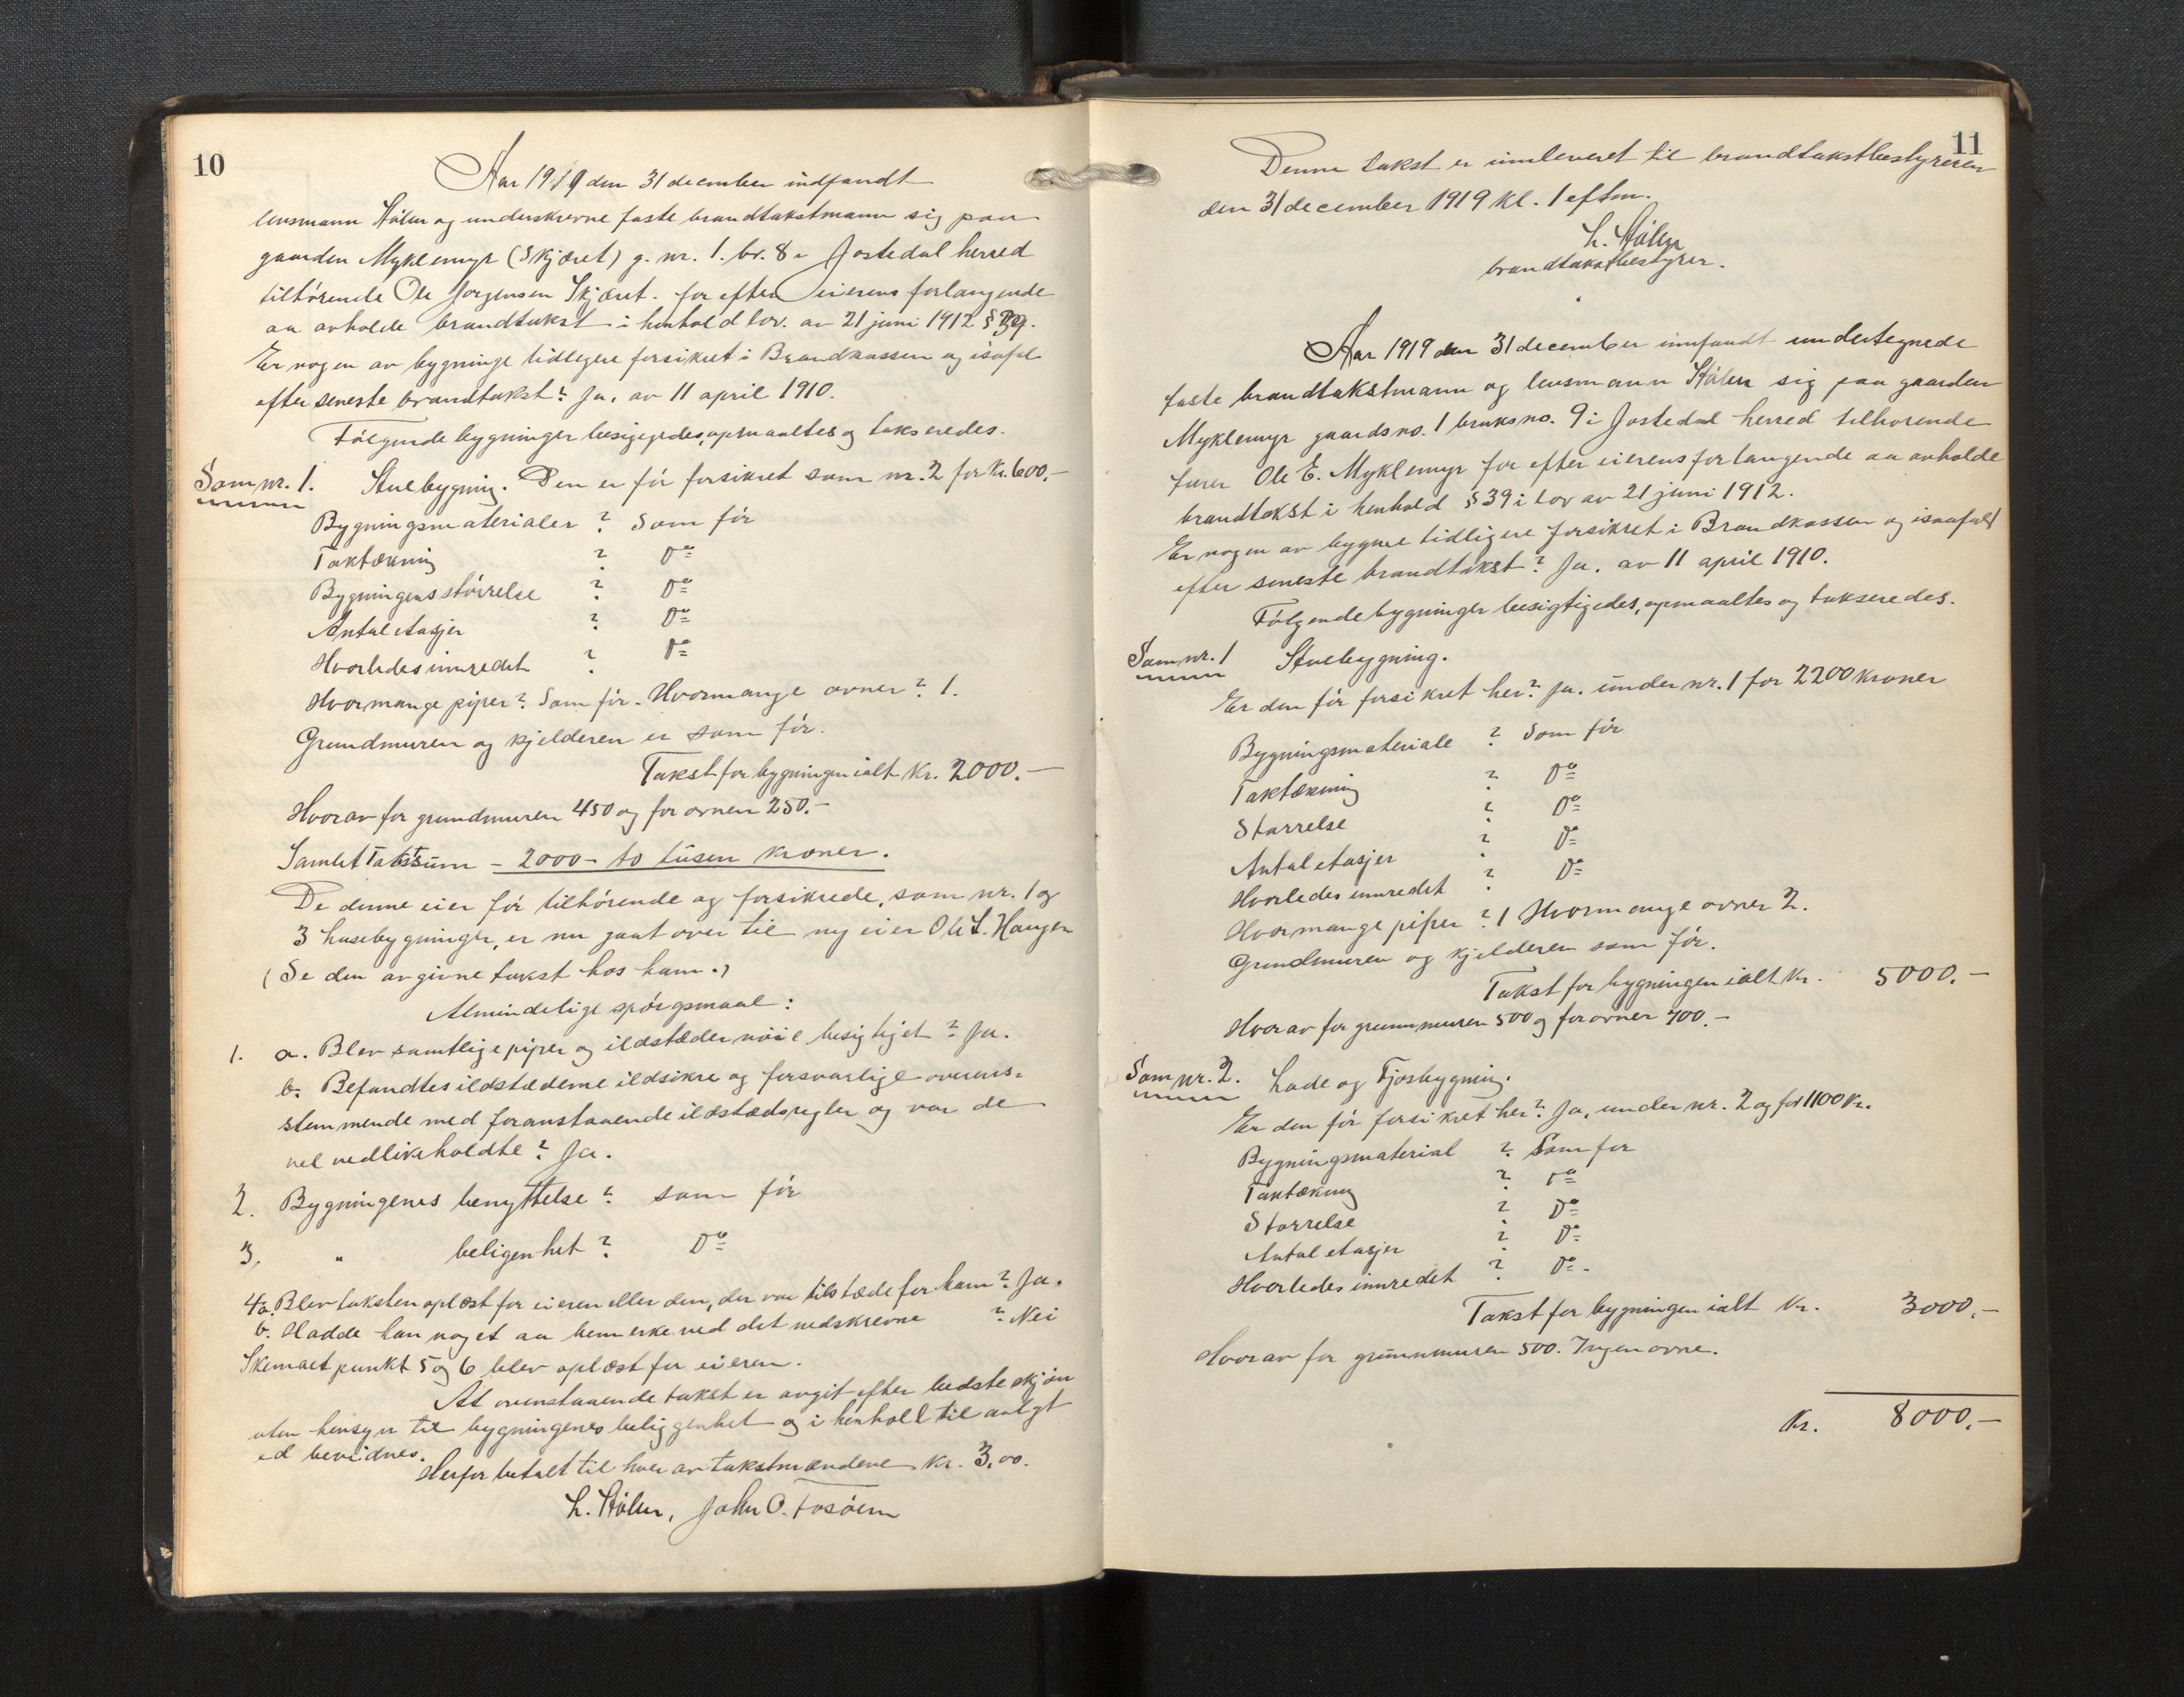 10
Aar 1919 den 31 december indfandt
lensmann Hålen og underskrevne faste brandtakstmann sig paa
gaarden Myklemyr (Skjæret) g. nr. 1. br. 8 i Jostedal herred
tilhørende Ole Jørgensen Skjæret. for efter eierens forlangende
aa avholde brandtakst i henhold lov. av 21 juni 1912 § 39.
Er nogen av bygninge tidligere forsikret i Brandkassen og isafal
efter seneste brandtakst? Ja. av 11 april 1910.
Følgende bygninger besigtigedes, opmaaltes og takseredes.
Som nr. 1. Stuebygning. Den er før forsikret som nr. 2 for Kr. 600.-
Bygningsmaterialer ? Som før
Taktækning ? Do
Bygningens størrelse ? Do
Antal etasjer ? Do
Hvorledes innredet ? Do
Hvormange piper? Som før. Hvormange ovner? 1.
Grundmuren og kjelderen er som før.
Takst for bygningen ialt Kr. 2000.-
Hvorav for grundmuren 450 og for ovnen 250.-
Samlet Takstsum - 2000 - to tusen kroner.
De denne eier før tilhørende og forsikrede, som nr. 1 og
3 husebygninger, er nu gaat over til ny eier Ole L. Haugen
(Se den avgivne takst hos ham.)
Almindelige spørgsmaal:
1. a. Blev samtlige piper og ildstæder nøie besigtiget? Ja.
b. Befandtes ildstæderne ildsikre og forsvarlige overens-
stemmende med foranstaaende ildstædsregler og var de
vel vedlikeholdte? Ja.
2. Bygningenes benyttelse? som før
3. " beligenhet? Do
4a. Blev taksten oplæst for eieren eller den, der var tilstæde for ham? Ja.
b. Hadde han noget aa bemerke ved det nedskrevne ? Nei
Skemaet punkt 5 og 6 blev oplæst for eieren.
At ovenstaaende takst er avgit efter bedste skjøn
uten hensyn til bygningenes beliggenhet og i henhold til avlagt
ed bevidnes.
Herfor betalt til hver av takstmændene kr. 3,00.
L. Hålen, John O. Fosøen
11
Denne takst er innleveret til brandtakstbestyreren
den 31 december 1919 kl. 1 eftm.
L. Hålen
brandtakstbestyrer.
Aar 1919 den 31 december innfandt undertegnede
faste brandtakstmann og lensmann Hålen sig paa gaarden
Myklemyr gaards no. 1 bruks no. 9 i Jostedal herred tilhorende
furer Ole E. Myklemyr for efter eierens forlangende aa avholde
brandtakst i henhold § 39 i lov av 21 juni 1912.
Er nogen av bygne tidligere forsikret i Brandkassen og isaafald
efter seneste brandtakst? Ja. av 11 april 1910.
Følgende bygninger besigtigedes, opmaaltes og takseredes.
Som nr. 1 Stuebygning.
Er den før forsikret her? Ja. under nr. 1 for 2200 kroner
Bygningsmateriale ? Som før
Taktækning ? Do
Størrelse ? Do
Antal etasjer ? Do
Hvorledes innredet ? Do
Hvormange piper? 1 Hvormange ovner 2.
Grundmuren og kjelderen som før.
Takst for bygningen ialt Kr. 5000.-
Hvorav for grunnmuren 500 og for ovner 400.-
Som nr. 2. Lade og Fjøsbygning.
Er den før forsikret her? Ja, under nr. 2 og for 1100 Kr.
Bygningsmaterial ? Som før
Taktækning ? Do
Størrelse ? Do
Antal etasjer ? Do
Hvorledes innredet ? Do.
Takst for bygningen ialt Kr. 3000.-
Hvorav for grunnmuren 500. Ingen ovne.
Kr. 8000.-